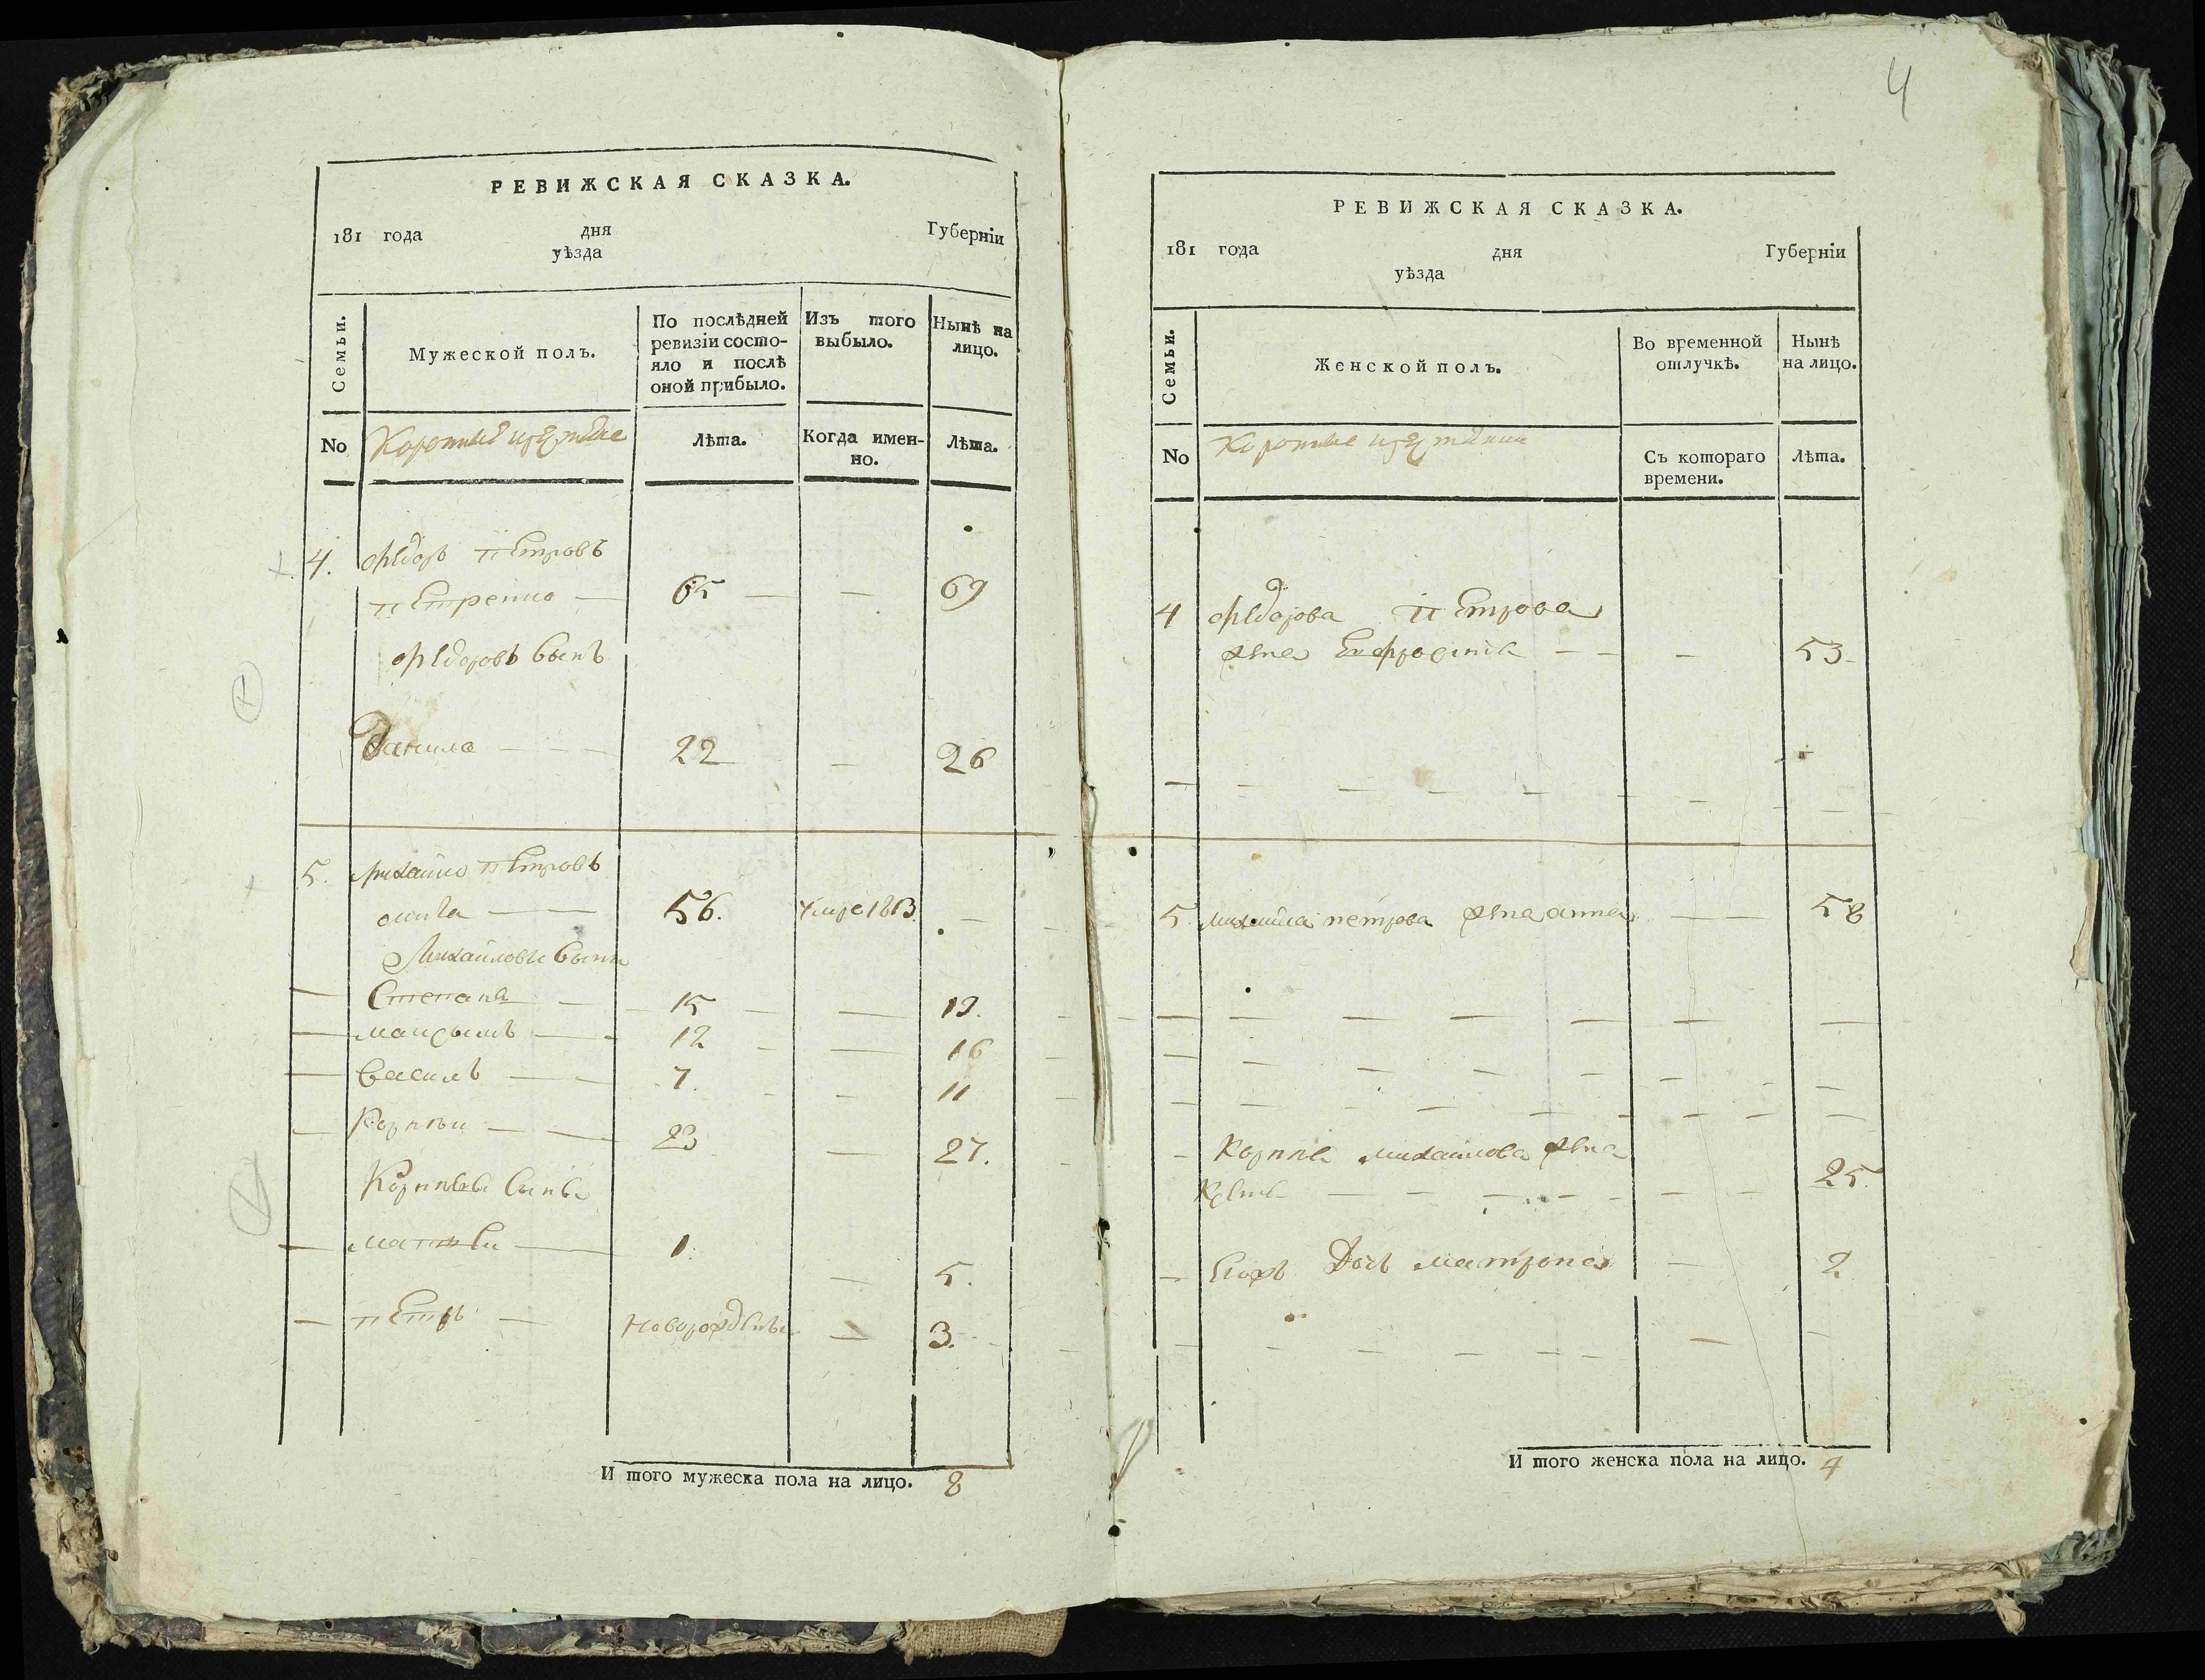 4
РЕВИЖСКАЯ СКАЗКА.
181 года дня Губерніи
уѣзда
Семьи.
Мужеской полъ.
По послѣдней ревизіи состо-
яло и послѣ
оной прибыло.
Изъ того выбыло.
Нынѣ на лицо.
No
Лѣта.
Когда имен-
но.
Лѣта.
4. Федоръ Петровъ
Петренко — 65 — — 69
Федоровъ сынъ
Данила — — — 22 — 26
5. Михайло Петровъ
56. Умре 1813. —
Михайловы сыны
— Степанъ — 15 — 19.
— 12 — 16
— Василь — 7. — 11
— Корнѣи — 23 — 27.
Корнѣевы сыны
— Матвѣи — 1. — 5.
— Петръ — Новорожденъ — 3.
И того мужеска пола на лицо. 8
РЕВИЖСКАЯ СКАЗКА.
181 года дня Губерніи
уѣзда
Семьи.
Женской полъ.
Во временной
отлучкѣ.
Нынѣ
на лицо.
No
Съ котораго
времени.
Лѣта.
4 Федорова Петрова
жена Ефросиніа — — — 53
5 Михайла петрова жена анна — 58
— Корнѣя михайлова жена
25.
— Дочь матрона — 2
И того женска пола на лицо. 4